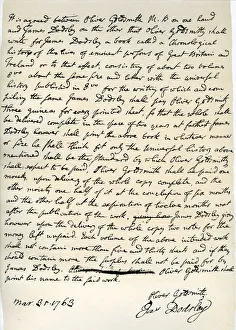 It is agreed between Oliver Goldsmith M.B on one hand
and James Dodsley on the other that Oliver Goldsmith shall
write for James Dodsley a book called a Chronological
history of the lives of eminent persons of Great Britain and
Ireland or to that effect, consisting of about two volumes
8vo about the same size and letter with the universal
history published in 8vo for the writing of which and com
piling the same James Dodsley shall pay Oliver Goldsmith
three guineas for every printed sheet so that the whole shall
be delivered complete in the space of two years at farthest James
Dodsley however shall print the above book in whatever manner
or size he shall think fit only the Universal history above
mentioned shall be the standard by which Oliver Goldsmith
shall expect to be paid. Oliver Goldsmith shall be paid one
moiety upon delivery of the whole copy complete and the
other moiety one half of it at the conclusion of six months
and the other half at the expiration of twelve months next
after the publication of the work James Dodsley giving
however upon the delivery of the whole copy two notes for the
money left unpaid. Each volume of the above intended work
shall not contain more than five and thirty sheets and if they
should contain more the surplus shall not be paid for by
James Dodsley. Oliver Goldsmith shall
print his name to the said work.
Oliver Goldsmith
Jas Dodsley
Mar. 31. 1763